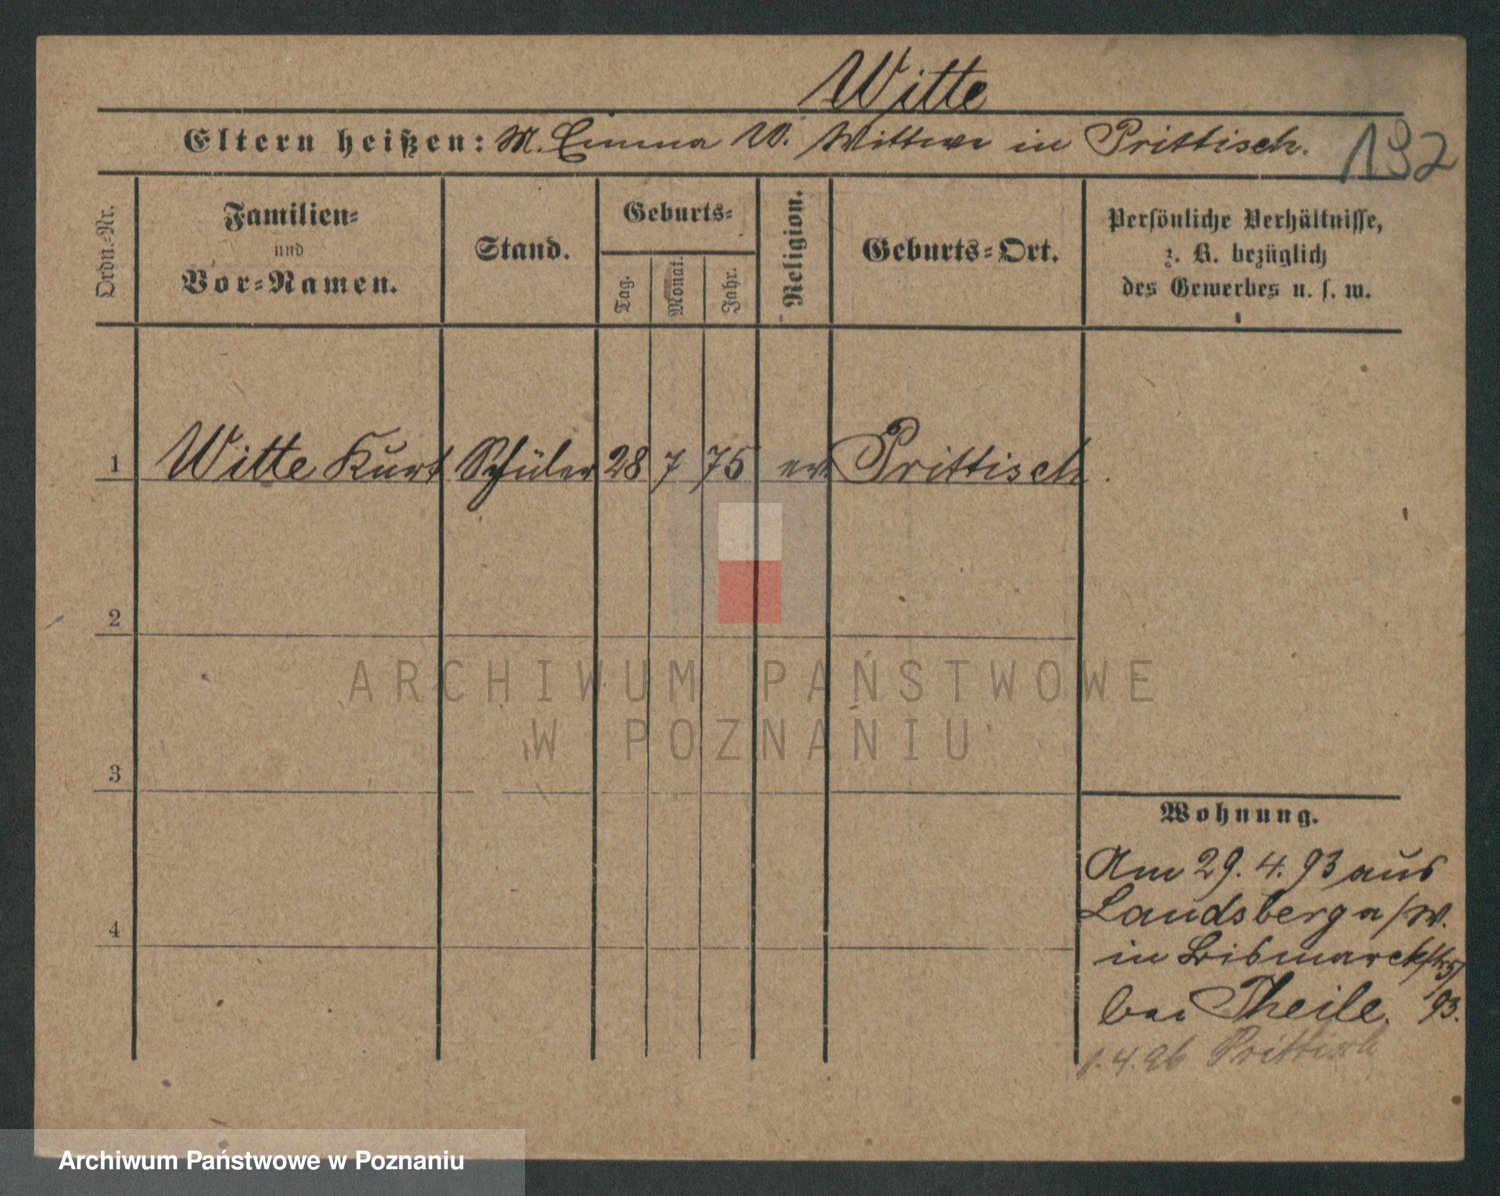 Witte
Eltern heißen: M. Emma W. Wittwe in Prittisch.
192
Ordn.-Nr.
Familien-
und
Vor-Namen.
Stand.
Geburts-
Tag.
Monat.
Jahr.
Religion.
Geburts-Ort.
Persönliche Verhältnisse,
z. B. bezüglich
des Gewerbes u. s. w.
1 Witte Kurt Schüler 28 7 75 ev Prittisch.
2
3
4
ARCHIWUM PAŃSTWOWE
W POZNANIU
Wohnung.
Am 29. 4. 93 aus
Landsberg a/W.
in Bismarckstr 5/
bei Theile. 93.
1.4.96 Prittisch
Archiwum Państwowe w Poznaniu